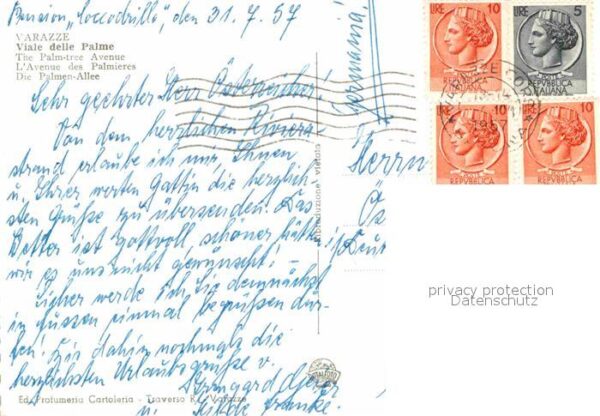 Pension „Coccodrillo", den 31.7.57
VARAZZE
Viale delle Palme
The Palm-tree Avenue
L'Avenue des Palmieres
Die Palmen-Allee
Sehr geehrter Herr Österreicher!
Von dem herrlichen Riviera-
strand erlaube ich mir, Ihnen
u. Ihrer werten Gattin die herzlich-
sten Grüße zu übersenden. Das
Wetter ist gottvoll, schöner hätten
wir es uns nicht gewünscht! –
Sicher werde ich Sie demnächst
in Füssen einmal begrüßen dür-
fen! Bis dahin nochmals die
herzlichsten Urlaubsgrüße v.
Irmgard
u.
Ed. Profumeria Cartoleria - Traverso R. - Varazze
Germania
Herrn
Ös
LIRE 10
LIRE 5
REPVBBLICA
ITALIANA
REPVBBLICA
ITALIANA
10
10
REPVBBLICA
REPVBBLICA
privacy protection
Datenschutz